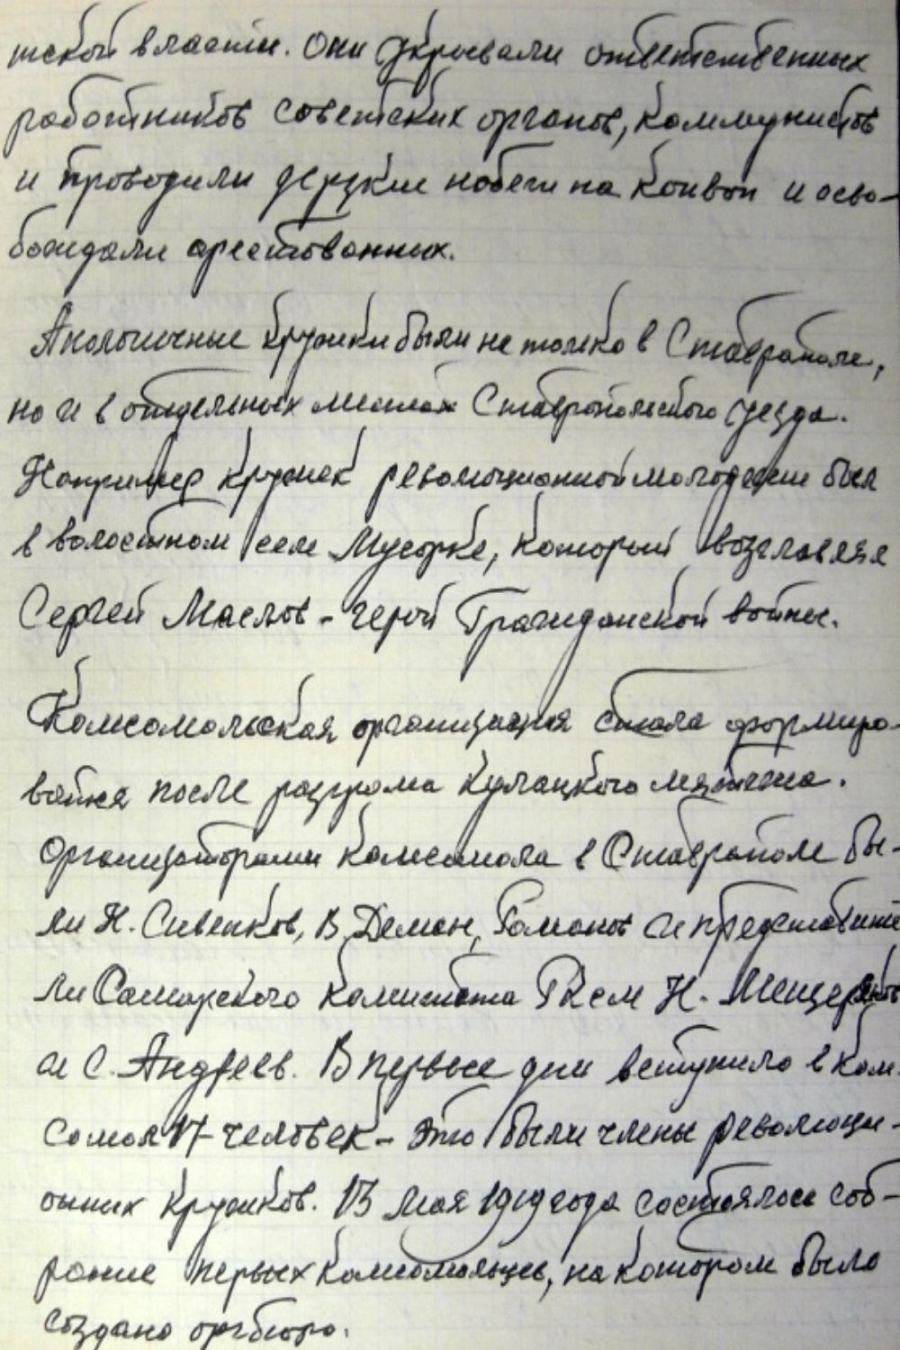 тской власти. Они укрывали ответственных
работников советских органов, коммунистов
и проводили дерзкие набеги на конвои и осво-
бождали арестованных.
Аналогичные кружки были не только в Ставрополе,
но и в отдельных местах Ставропольского уезда.
Например кружек революционной молодежи был
в волостном селе Мусорке, который возглавлял
Сергей Маслов - герой Гражданской войны.
Комсомольская организация стала формиро-
ваться после разгрома кулацкого мятежа.
Организаторами комсомола в Ставрополе бы-
ли Н. Сивенков, В. Демен, Романов и представите
ли Самарского комитета РКСМ Н. Мещеряков
и С. Андреев. В первые дни вступило в ком-
сомол 17 человек - это были члены революци-
онных кружков. 13 мая 1919 года состоялось соб-
рание первых комсомольцев, на котором было
создано оргбюро.